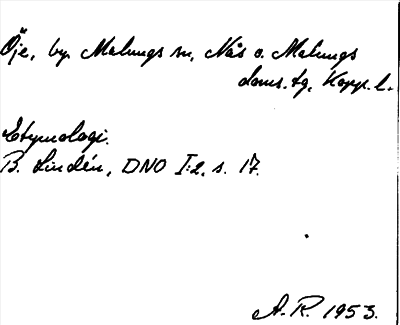 Öje, by. Malungs sn, Nås o. Malungs
doms. tg, Kopp. l.
Etymologi.
B. Lindén, DNO I:2, s. 17.
A. R. 1953.